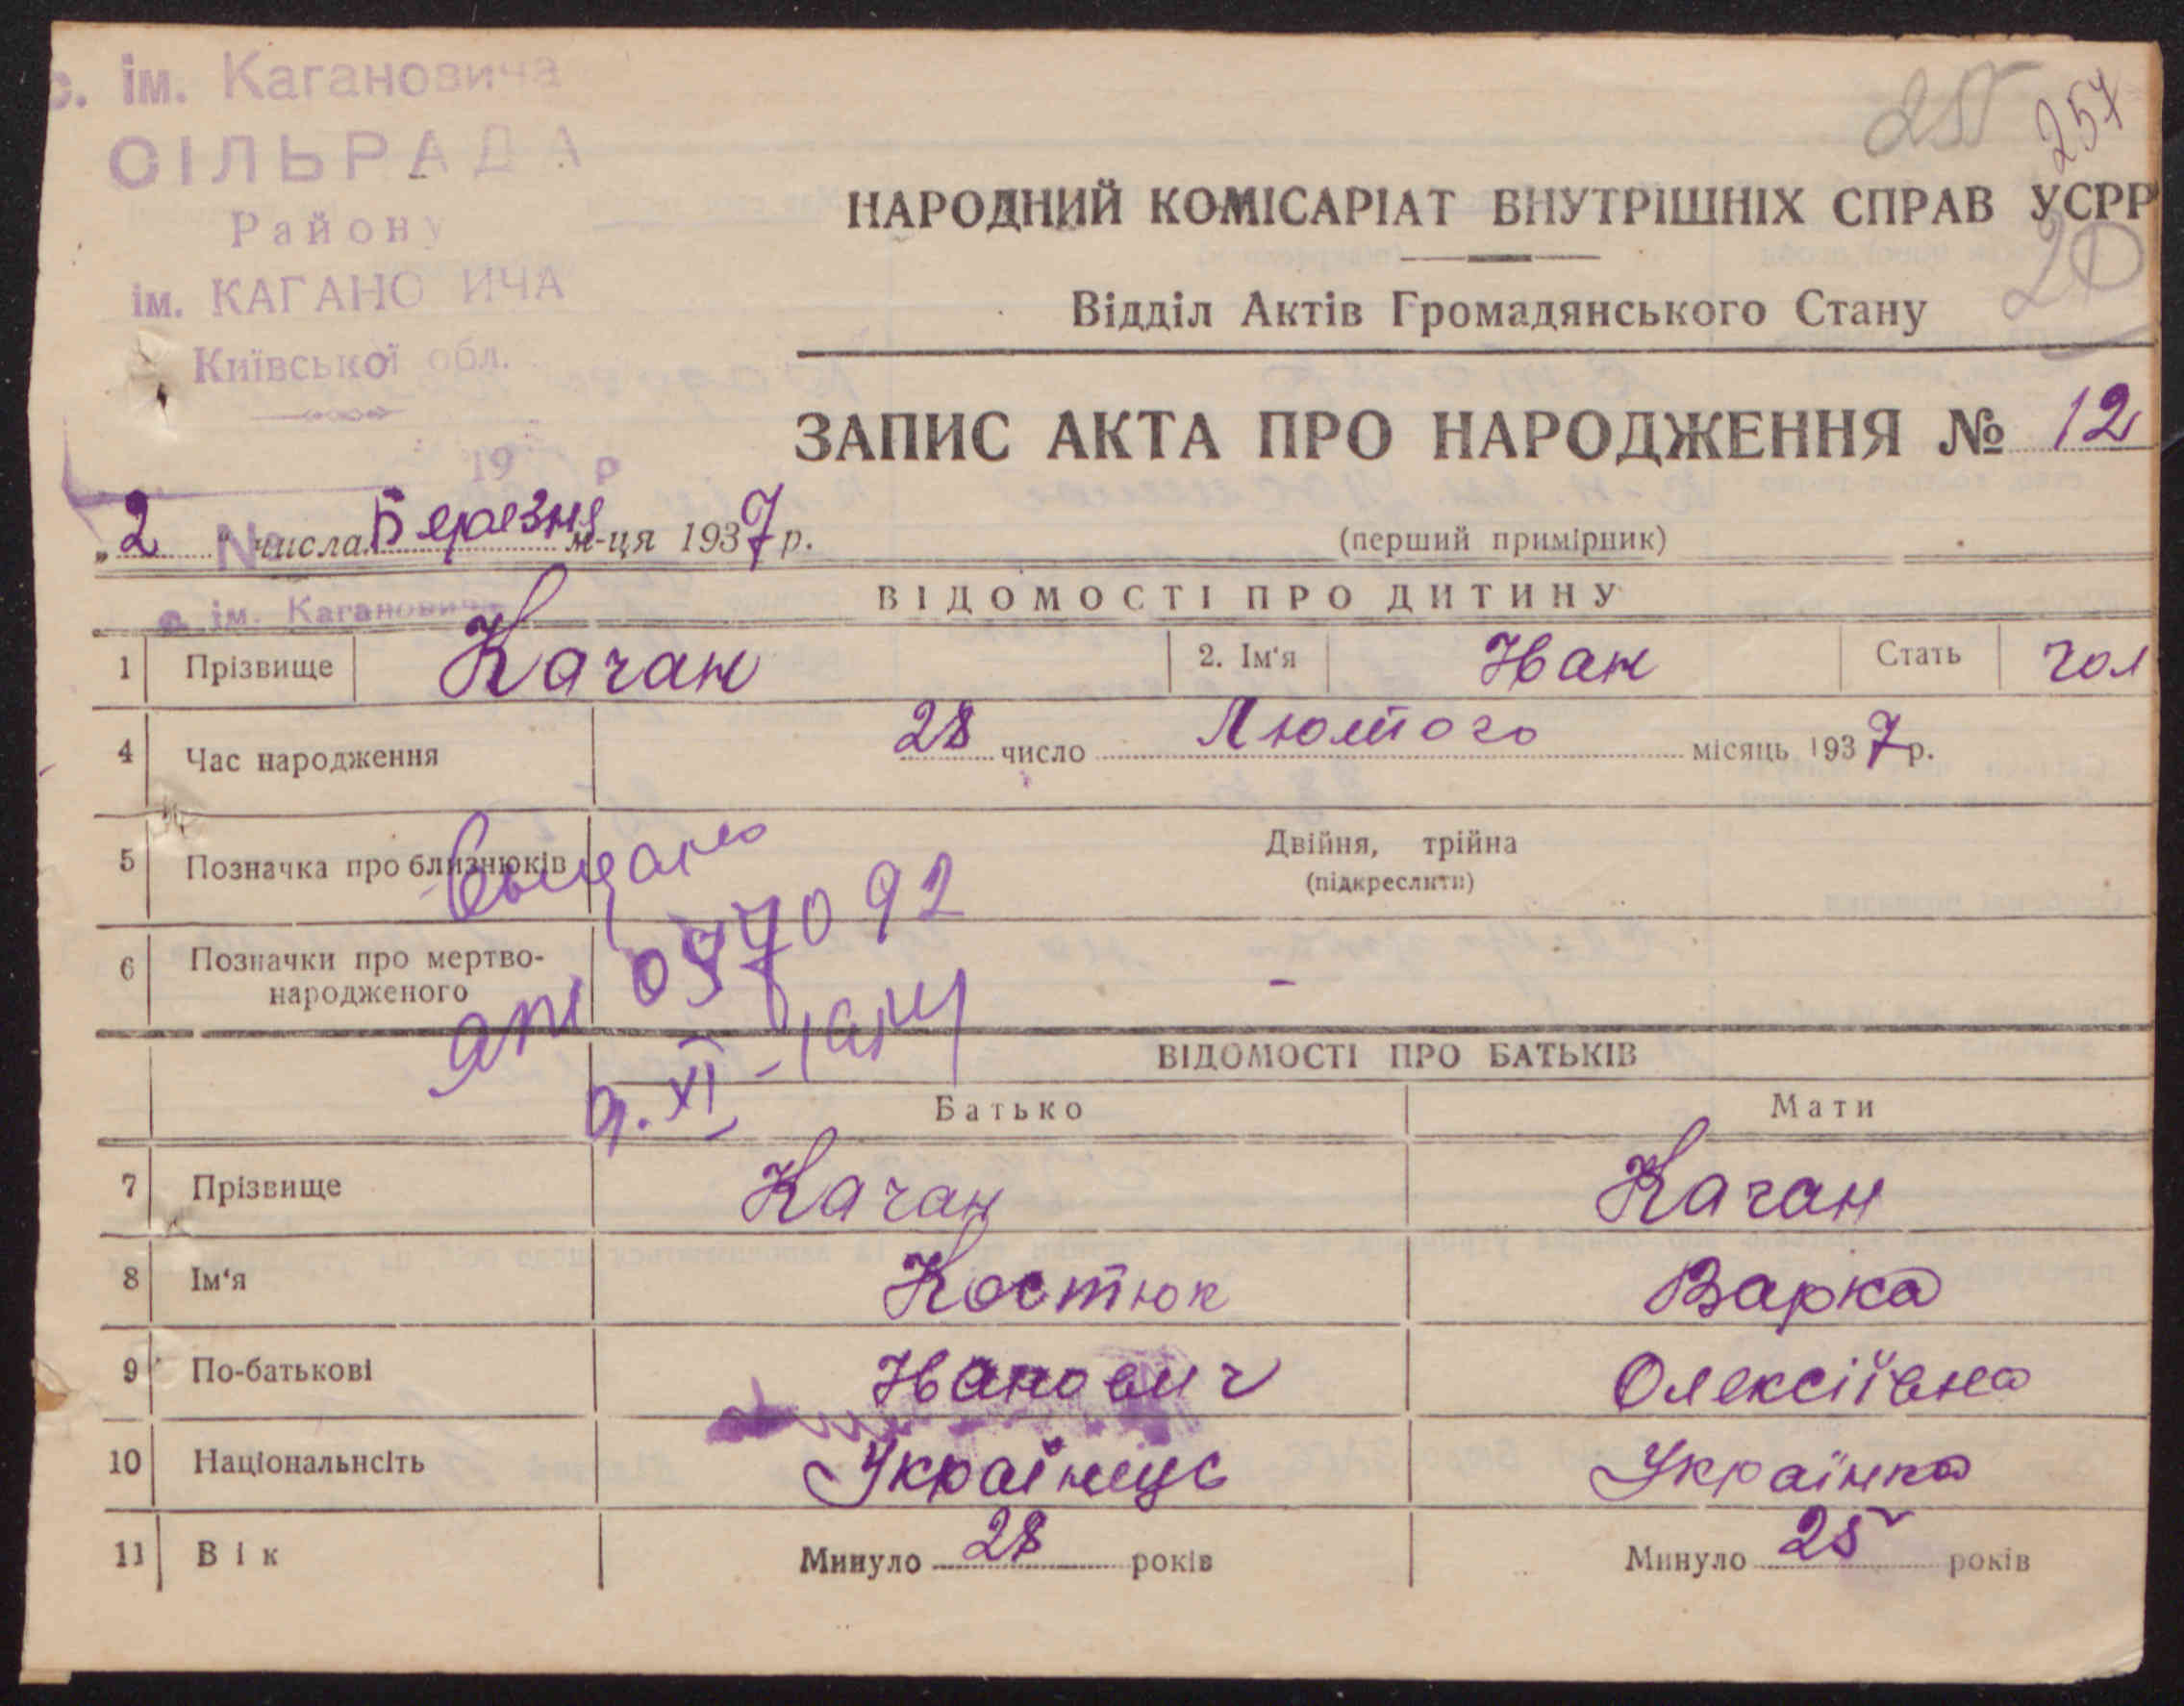 с. ім. Кагановича
СІЛЬРАДА
Району
ім. КАГАНО ИЧА
Київської обл.
19 р
№
с. ім. Кагановича
255
257
20
НАРОДНИЙ КОМІСАРІАТ ВНУТРІШНІХ СПРАВ УСРР
Відділ Актів Громадянського Стану
ЗАПИС АКТА ПРО НАРОДЖЕННЯ № 12
„2" числа Березня м-ця 1937 р.
(перший примірник)
ВІДОМОСТІ ПРО ДИТИНУ
1 Прізвище Качан 2. Ім'я Іван Стать чол
4 Час народження 28 число Лютого місяць 1937 р.
5 Позначка про близнюків Двійня, трійна
(підкреслити)
Выдано
6 Позначки про мертво-
народженого -
ВІДОМОСТІ ПРО БАТЬКІВ
Батько Мати
7 Прізвище Качан Качан
8 Ім'я Костюк Варка
9 По-батькові Іванович Олексіївна
10 Національнсіть Українець Українка
11 Вік Минуло 28 років Минуло 25 років